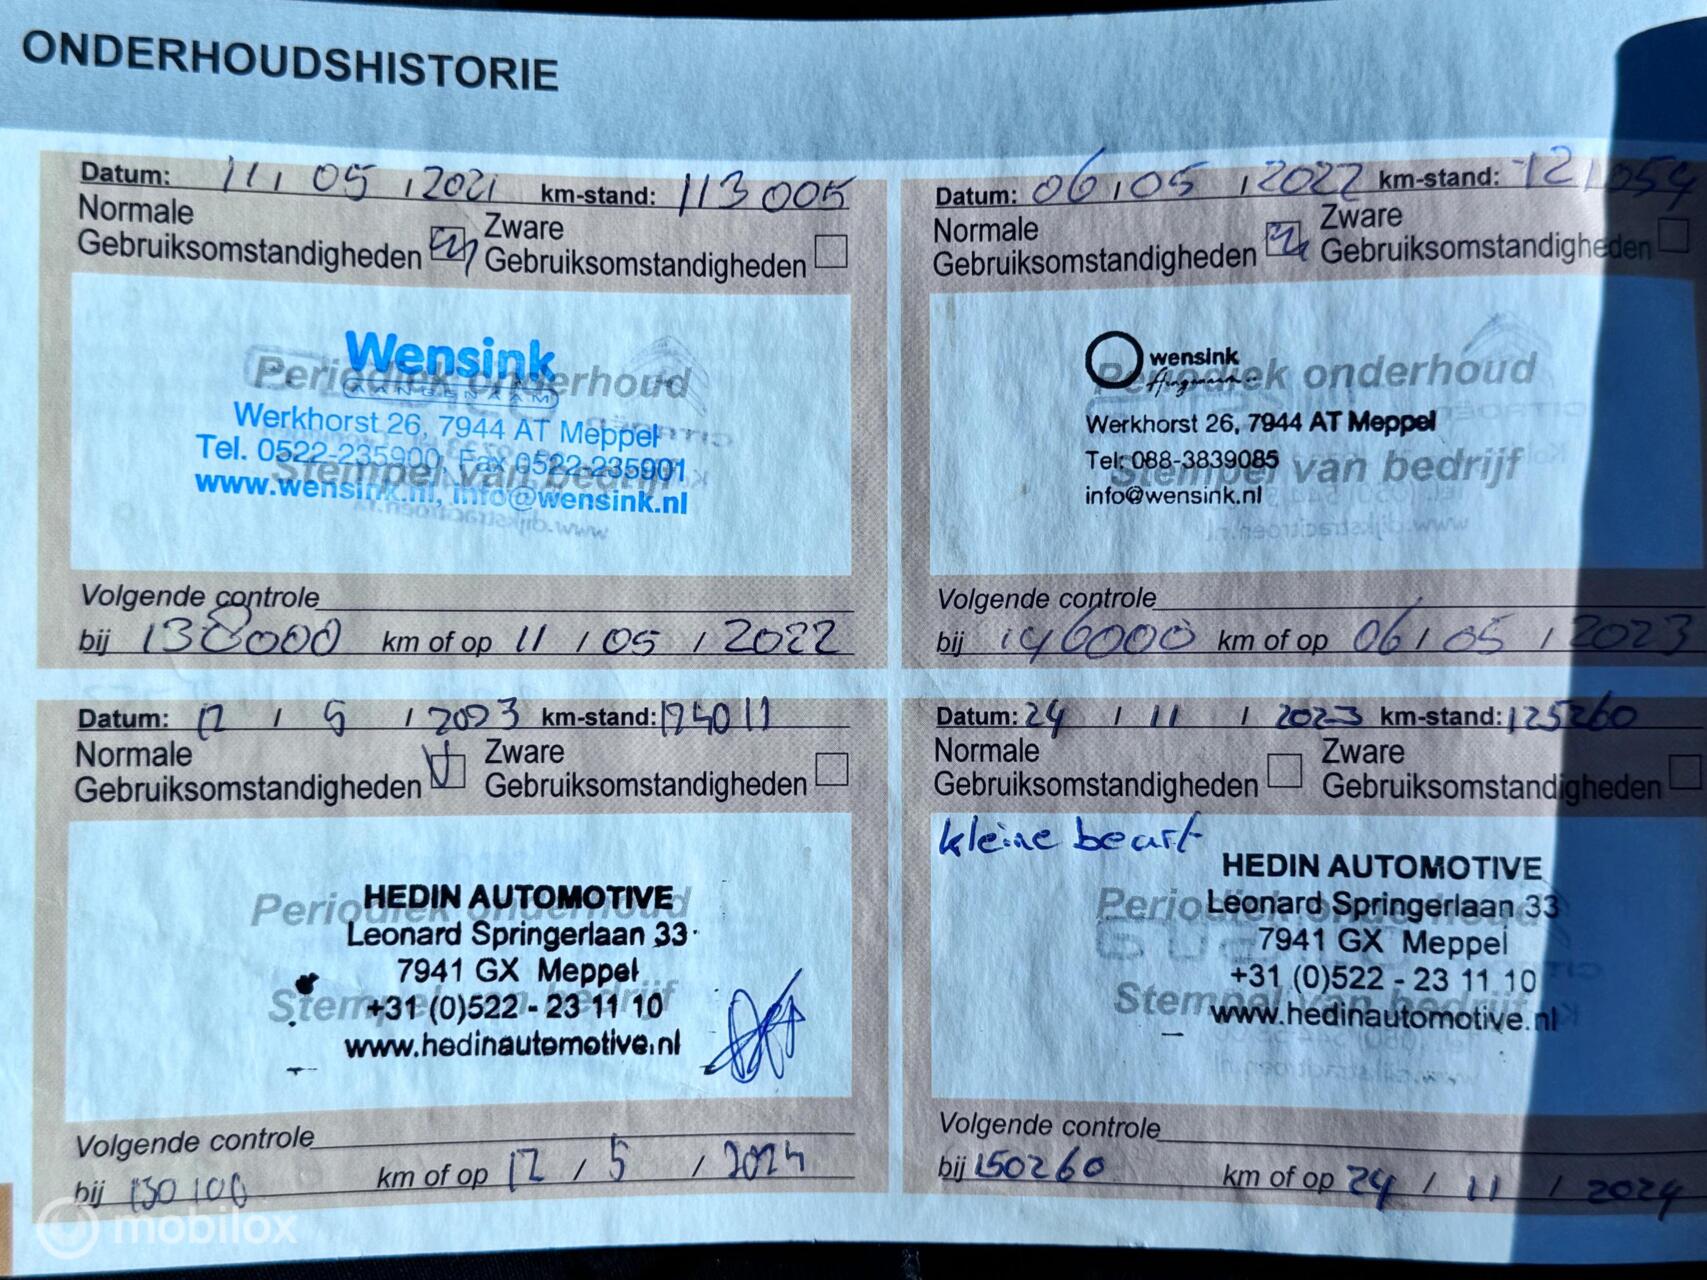 ONDERHOUDSHISTORIE
Datum: 11 / 05 / 2021 km-stand: 113005
Normale Gebruiksomstandigheden Zware Gebruiksomstandigheden
Wensink
AANGENAAM
Periodiek onderhoud
Werkhorst 26, 7944 AT Meppel
Tel. 0522-235900, Fax 0522-235901
Stempel van bedrijf
www.wensink.nl, info@wensink.nl
Volgende controle
bij 138000 km of op 11 / 05 / 2022
Datum: 06 / 05 / 2022 km-stand: 121054
Normale Gebruiksomstandigheden Zware Gebruiksomstandigheden
wensink
Periodiek onderhoud
Werkhorst 26, 7944 AT Meppel
Tel: 088-3839085
Stempel van bedrijf
info@wensink.nl
Volgende controle
bij 146000 km of op 06 / 05 / 2023
Datum: 12 / 5 / 2023 km-stand:
Normale Gebruiksomstandigheden Zware Gebruiksomstandigheden
HEDIN AUTOMOTIVE
Periodiek onderhoud
Leonard Springerlaan 33
7941 GX Meppel
Stempel van bedrijf
+31 (0)522 - 23 11 10
www.hedinautomotive.nl
Volgende controle
bij km of op 12 / 5 / 2024
Datum: 24 / 11 / 2023 km-stand: 125260
Normale Gebruiksomstandigheden Zware Gebruiksomstandigheden
kleine beurt
HEDIN AUTOMOTIVE
Periodiek onderhoud
Leonard Springerlaan 33
7941 GX Meppel
+31 (0)522 - 23 11 10
Stempel van bedrijf
www.hedinautomotive.nl
Volgende controle
bij 150260 km of op 24 / 11 / 2024
mobilox